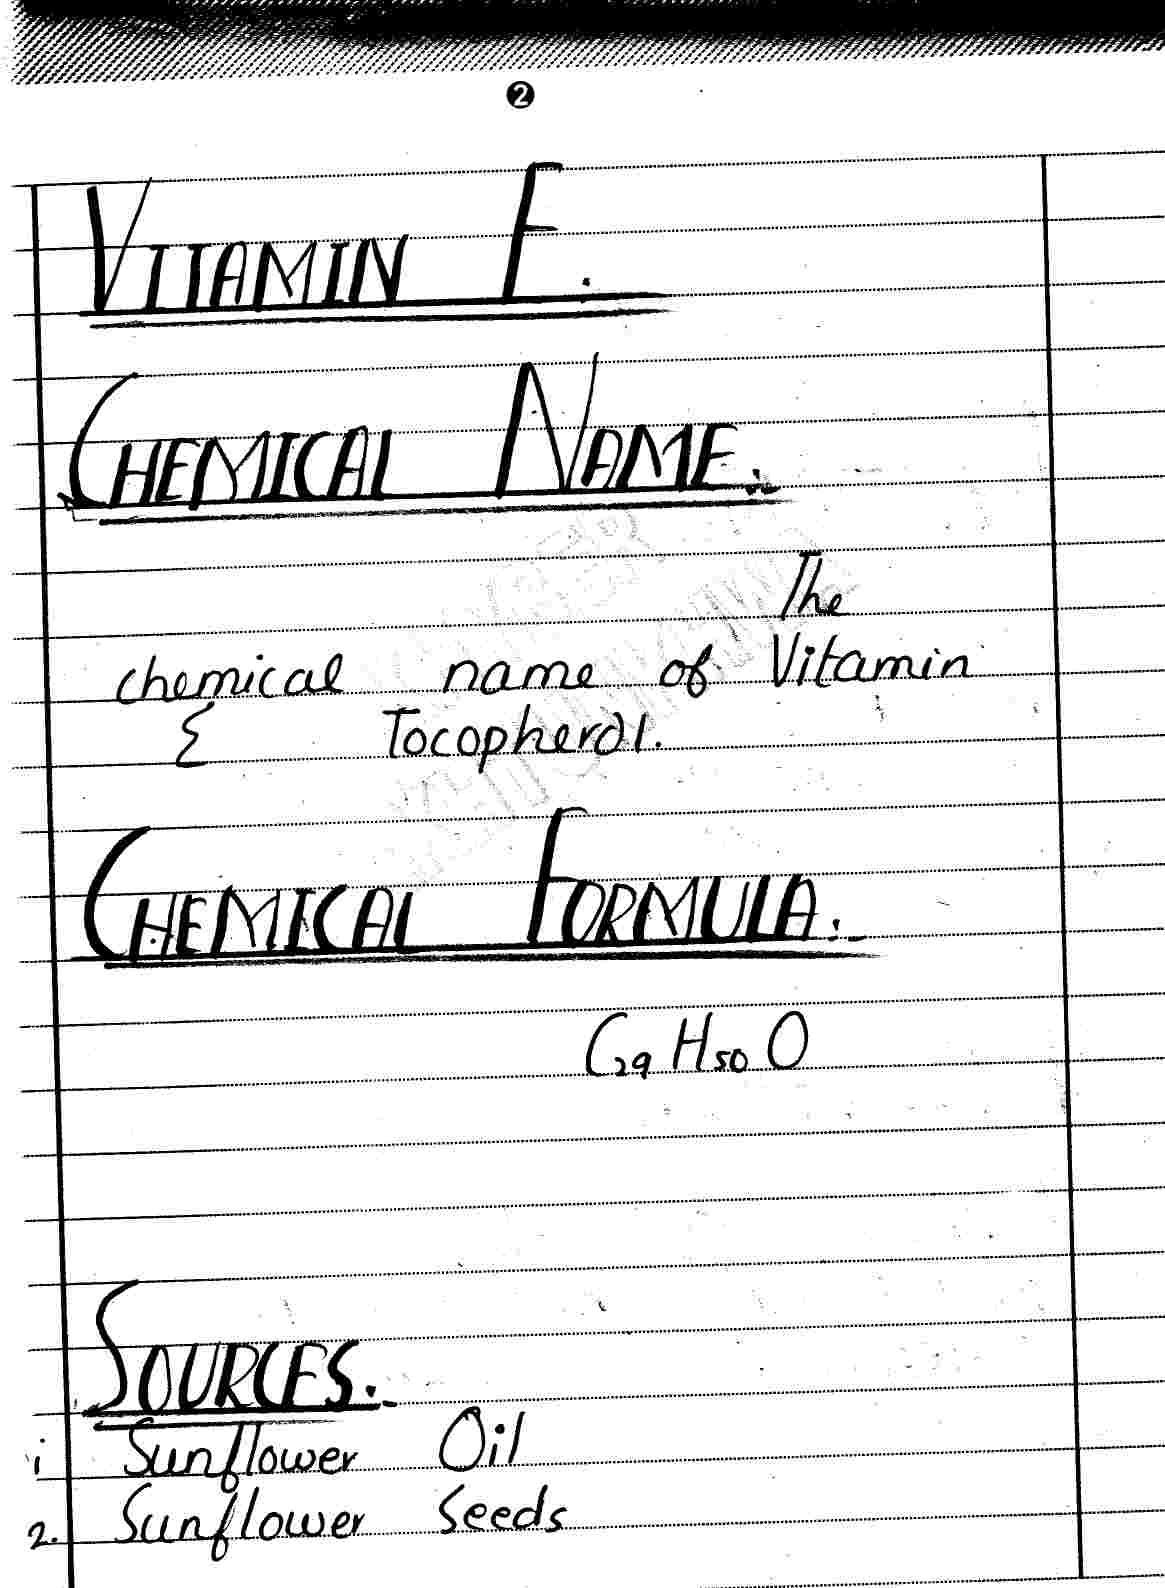 2
VITAMIN E.
CHEMICAL NAME:-
The
chemical name of Vitamin
E Tocopherol.
CHEMICAL FORMULA:-
C29 H50 O
SOURCES:-
i Sunflower Oil
2. Sunflower Seeds